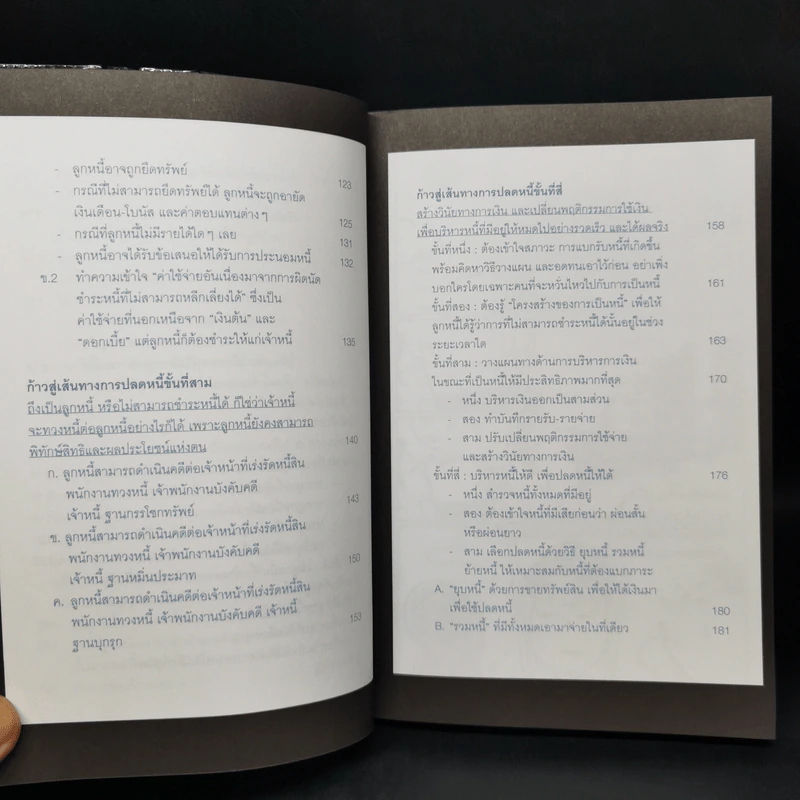 - ลูกหนี้อาจถูกยึดทรัพย์ 123
- กรณีที่ไม่สามารถยึดทรัพย์ได้ ลูกหนี้จะถูกอายัด
เงินเดือน-โบนัส และค่าตอบแทนต่างๆ 125
- กรณีที่ลูกหนี้ไม่มีรายได้ใดๆ เลย 131
- ลูกหนี้อาจได้รับข้อเสนอให้ได้รับการประนอมหนี้ 132
ข.2 ทำความเข้าใจ "ค่าใช้จ่ายอันเนื่องมาจากการผิดนัด
ชำระหนี้ที่ไม่สามารถหลีกเลี่ยงได้" ซึ่งเป็น
ค่าใช้จ่ายที่นอกเหนือจาก "เงินต้น" และ
"ดอกเบี้ย" แต่ลูกหนี้ก็ต้องชำระให้แก่เจ้าหนี้ 135
ก้าวสู่เส้นทางการปลดหนี้ขั้นที่สาม
ถึงเป็นลูกหนี้ หรือไม่สามารถชำระหนี้ได้ ก็ใช่ว่าเจ้าหนี้
จะทวงหนี้ต่อลูกหนี้อย่างไรก็ได้ เพราะลูกหนี้ยังคงสามารถ
พิทักษ์สิทธิและผลประโยชน์แห่งตน 140
ก. ลูกหนี้สามารถดำเนินคดีต่อเจ้าหน้าที่เร่งรัดหนี้สิน
พนักงานทวงหนี้ เจ้าพนักงานบังคับคดี
เจ้าหนี้ ฐานกรรโชกทรัพย์ 143
ข. ลูกหนี้สามารถดำเนินคดีต่อเจ้าหน้าที่เร่งรัดหนี้สิน
พนักงานทวงหนี้ เจ้าพนักงานบังคับคดี
เจ้าหนี้ ฐานหมิ่นประมาท 150
ค. ลูกหนี้สามารถดำเนินคดีต่อเจ้าหน้าที่เร่งรัดหนี้สิน
พนักงานทวงหนี้ เจ้าพนักงานบังคับคดี เจ้าหนี้ 153
ฐานบุกรุก
ก้าวสู่เส้นทางการปลดหนี้ขั้นที่สี่
สร้างวินัยทางการเงิน และเปลี่ยนพฤติกรรมการใช้เงิน
เพื่อบริหารหนี้ที่มีอยู่ให้หมดไปอย่างรวดเร็ว และได้ผลจริง 158
ขั้นที่หนึ่ง : ต้องเข้าใจสภาวะ การแบกรับหนี้ที่เกิดขึ้น
พร้อมคิดหาวิธีวางแผน และอดทนเอาไว้ก่อน อย่าเพิ่ง
บอกใครโดยเฉพาะคนที่จะหวั่นไหวไปกับการเป็นหนี้ 161
ขั้นที่สอง : ต้องรู้ "โครงสร้างของการเป็นหนี้" เพื่อให้
ลูกหนี้ได้รู้ว่าการที่ไม่สามารถชำระหนี้ได้นั้นอยู่ในช่วง
ระยะเวลาใด 163
ขั้นที่สาม : วางแผนทางด้านการบริหารการเงิน
ในขณะที่เป็นหนี้ให้มีประสิทธิภาพมากที่สุด 170
- หนึ่ง บริหารเงินออกเป็นสามส่วน
- สอง ทำบันทึกรายรับ-รายจ่าย
- สาม ปรับเปลี่ยนพฤติกรรมการใช้จ่าย
และสร้างวินัยทางการเงิน
ขั้นที่สี่ : บริหารหนี้ให้ดี เพื่อปลดหนี้ให้ได้ 176
- หนึ่ง สำรวจหนี้ทั้งหมดที่มีอยู่
- สอง ต้องเข้าใจหนี้ที่มีเสียก่อนว่า ผ่อนสั้น
หรือผ่อนยาว
- สาม เลือกปลดหนี้ด้วยวิธี ยุบหนี้ รวมหนี้
ย้ายหนี้ ให้เหมาะสมกับหนี้ที่ต้องแบกภาระ
A. "ยุบหนี้" ด้วยการขายทรัพย์สิน เพื่อให้ได้เงินมา
เพื่อใช้ปลดหนี้ 180
B. "รวมหนี้" ที่มีทั้งหมดเอามาจ่ายในที่เดียว 181